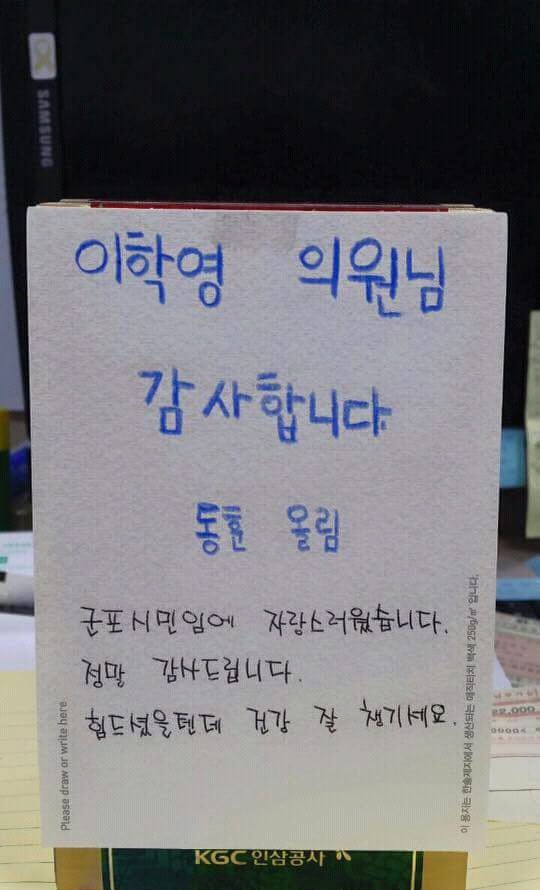 SAMSUNG
이학영 의원님
감사합니다
동훈 올림
군포시민임에 자랑스러웠습니다.
정말 감사드립니다.
힘드셨을텐데 건강 잘 챙기세요.
Please draw or write here
이 용지는 한솔제지에서 생산되는 매직터치 백색 250g/㎡ 입니다.
KGC 인삼공사